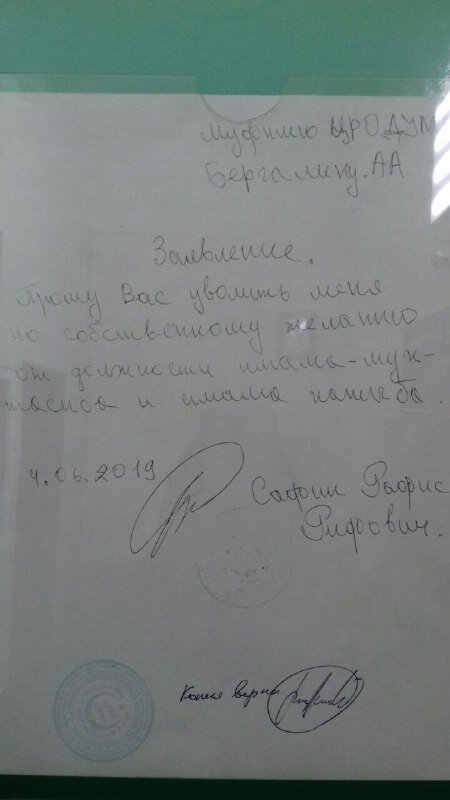 Муфтию ЦРО ДУМ
Бергалину. А А.
Заявление.
Прошу Вас уволить меня
по собственному желанию
от должности имама-мух-
тасиба и имама хатыба.
4.06.2019
Сафин Рафис
Рифович.
Копия верна